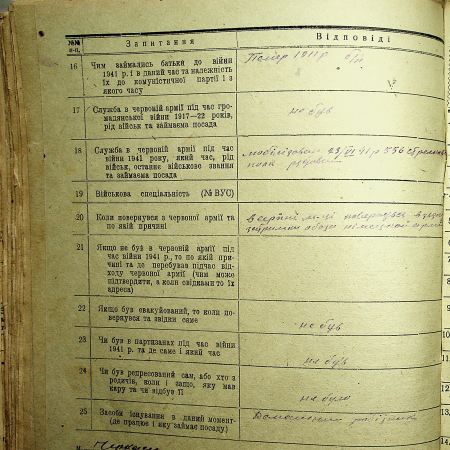 №№ п-п. Запитання Відповіді
16 Чим займались батьки до війни
1941 р. і в даний час та належність
їх до комуністичної партії і з
якого часу
Помер 1911 р
17 Служба в червоній армії під час гро-
мадянської війни 1917—22 років,
рід військ та займаєма посада
не був
18 Служба в червоній армії під час
війни 1941 року, який час, рід
військ, останнє військове звання
та займаєма посада
мобілізован 23/VI 41 р 556 стрелков
полк рядовий
19 Військова спеціальність (№ ВУС)
20 Коли повернувся з червоної армії та
по якій причині
в серпні
21 Якщо не був в червоній армії під
час війни 1941 р., то по якій при-
чині та де перебував підчас від-
ходу червоної армії (чим може
підтвердити, а коли свідками то їх
адреса)
22 Якщо був евакуйований, то коли по-
вернувся та звідки саме
не був
23 Чи був в партизанах під час війни
1941 р. та де саме і який час
не був
24 Чи був репресований сам, або хто з
родичів, коли і защо, яку мав
кару та чи відбув її
не було
25 Засоби існування в даний момент
(де працює і яку займає посаду)
8
9
10.
11.
12.
13.
14.